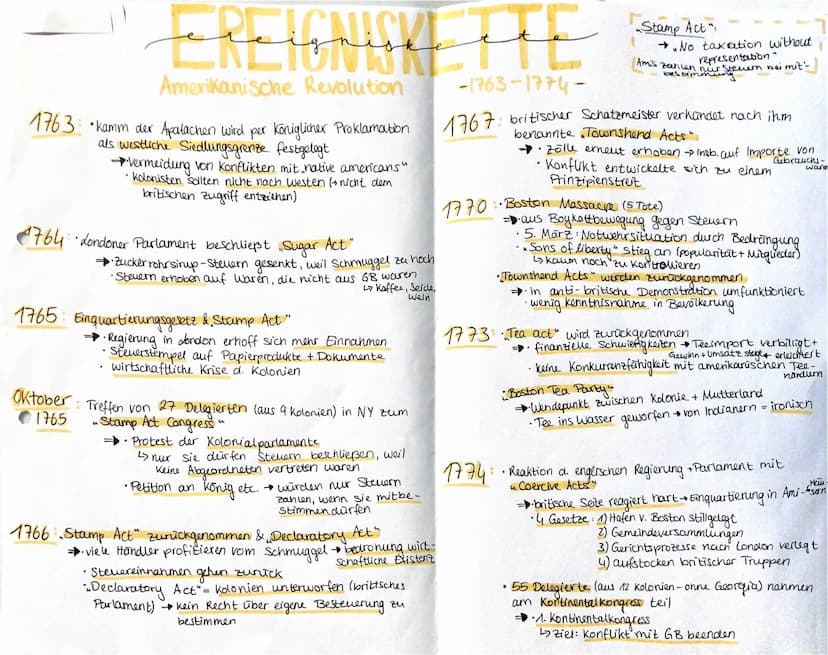 EREIGNISKETTE
ereigniskette
Amerikanische Revolution
-1763-1774-
"Stamp Act":
→ "No taxation without
representation"
(Amis zahlen nur Steuern bei mit-
bestimmung)
1763: • Kamm der Apalachen wird per königlicher Proklamation
als westliche Siedlungsgrenze festgelegt
⇒ • Vermeidung von Konflikten mit "native americans"
• Kolonisten sollten nicht nach Westen (→ nicht dem
britischen Zugriff entziehen)
1764: • Londoner Parlament beschließt "Sugar Act"
⇒ • Zuckerrohrsirup-Steuern gesenkt, weil Schmuggel zu hoch
• Steuern erhoben auf Waren, die nicht aus GB waren
↳ Kaffee, Seide,
Wein
1765: Einquartierungsgesetz & "Stamp Act"
⇒ • Regierung in London erhoff sich mehr Einnahmen
• Steuerstempel auf Papierprodukte + Dokumente
• wirtschaftliche Krise d. Kolonien
Oktober
1765: Treffen von 27 Delegierten (aus 9 Kolonien) in NY zum
"Stamp Act Congress"
⇒ • Protest der Kolonialparlamente
↳ nur sie dürfen Steuern beschließen, weil
keine Abgeordneten vertreten waren
• Petition an König etc. → würden nur Steuern
zahlen, wenn sie mitbe-
stimmen dürfen
1766: "Stamp Act" zurückgenommen & "Declaratory Act"
⇒ • viele Händler profitieren vom Schmuggel → bedrohung wirt-
schaftliche Existenz
• Steuereinnahmen gehen zurück
• "Declaratory Act" = Kolonien unterworfen (britisches
Parlament) → kein Recht über eigene Besteuerung zu
bestimmen
1767: britischer Schatzmeister verkündet nach ihm
benannte "Townshend Acts"
⇒ • Zölle erneut erhoben → insb. auf Importe von
Gebrauchs-
ware
• Konflikt entwickelte sich zu einem
Prinzipienstreit
1770: • Boston Massacre (5 Tote)
⇒ • aus Boykottbewegung gegen Steuern
• 5. März: Notwehrsituation durch Bedrängung
• "Sons of liberty" stieg an (popularität + Mitglieder)
↳ kaum noch zu kontrollieren
• "Townshend Acts" wurden zurückgenommen
⇒ • in anti-britische Demonstration umfunktioniert
• wenig kenntnisnahme in Bevölkerung
1773: • "Tea act" wird zurückgenommen
⇒ • finanzielle Schwierigkeiten → Teeimport verbilligt +
erleichtert
Gewinn + Umsatz steigt
• keine Konkurrenzfähigkeit mit amerikanischen Tee-
händlern
• "Boston Tea Party"
⇒ • Wendepunkt zwischen Kolonie + Mutterland
• Tee ins Wasser geworfen → von Indianern = ironisch
1774: • Reaktion d. englischen Regierung + Parlament mit
"Coercive Acts"
⇒ • britische Seite reagiert hart → Einquartierung in Ami-
Häusern
• 4 Gesetze: 1) Hafen v. Boston stillgelegt
2) Gemeindeversammlungen
3) Gerichtsprozesse nach London verlegt
4) aufstocken britischer Truppen
• 55 Delegierte (aus 12 Kolonien - ohne Georgia) nahmen
am Kontinentalkongress teil
⇒ • 1. Kontinentalkongress
↳ Ziel: Konflikt mit GB beenden